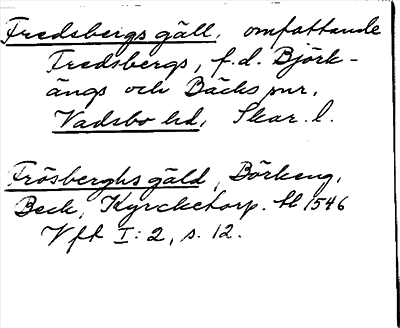 Fredsbergs gäll, omfattande
Fredsbergs, f.d. Björk-
ängs och Bäcks snr,
Vadsbo hd, Skar. l.
Frösberghs gäld, Börkeng,
Beck, Kyrcketorp. 1546
Vft I:2, s. 12.